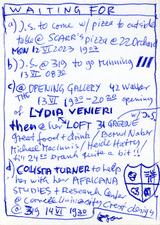 WAITING FOR
a) J.S. to come w/ pizza to outside
table @ SCARR'S pizza @ 22 Orchard
MON 12 VI 2023 19:
b) J.S. @ 319 to go running
13 VI 08:30
c) @ OPENING GALLERY 42 Walker
The 13 VI 19 - 20:30 opening
of LYDIA VENIERI w/ J.S
then @ her LOFT 31 GREENE
great food + drink / Bernd Naber
Michael MacInnis / Heide Hatry
till 24
d) COLISTA TURNER to help
her with her AFRICANA
STUDIES + Research Center
@ Cornell University
@ 319 14 VI 19:30